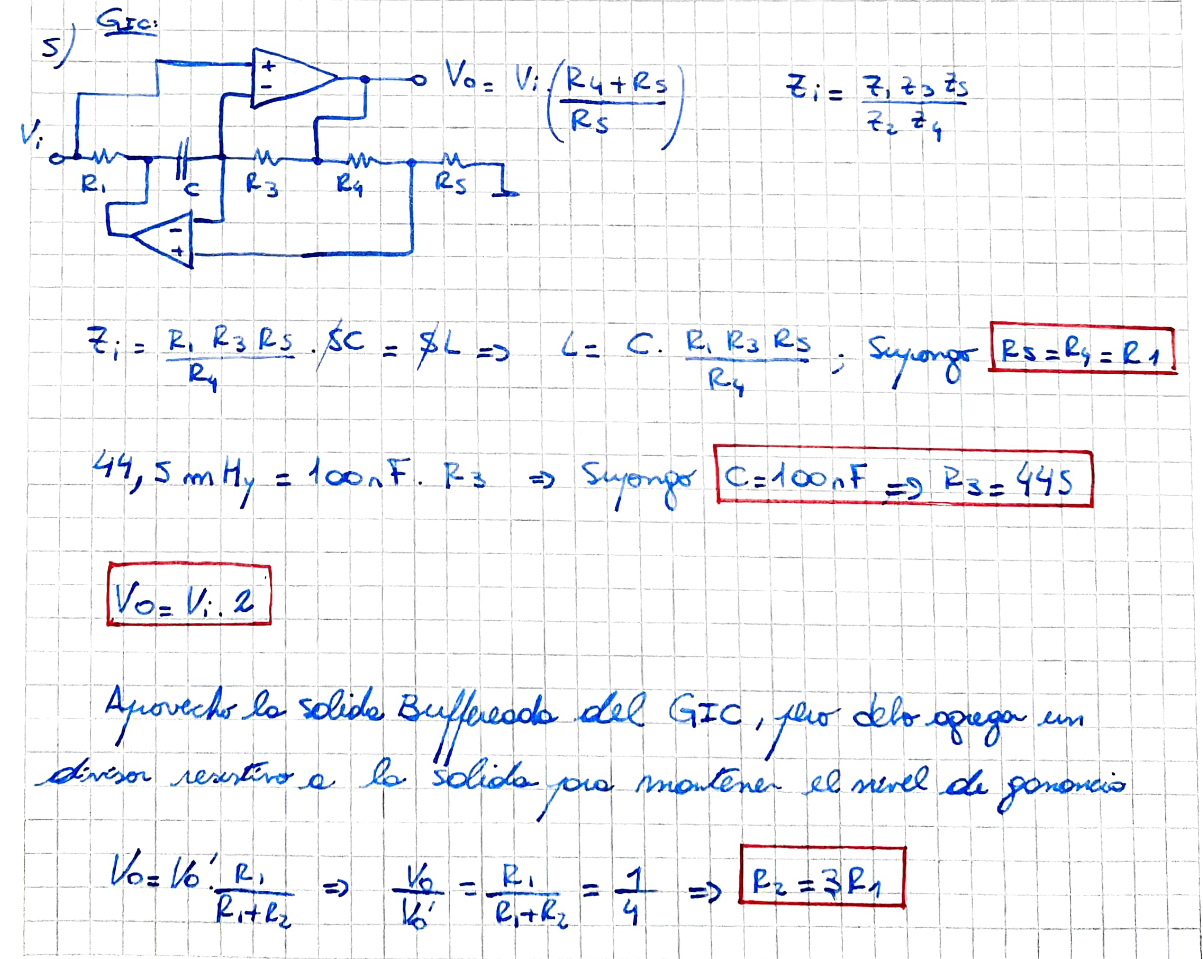 5) GIC:
Vo = Vi (R4+R5 / R5)
Zi = Z1 Z3 Z5 / Z2 Z4
Vi
R1 C R3 R4 R5
+
-
-
+
Zi = R1 R3 R5 / R4 . $C = $L => L = C. R1 R3 R5 / R4 ; Supongo R5 = R4 = R1
44,5 mHy = 100nF. R3 => Supongo C=100nF => R3 = 445
Vo = Vi. 2
Aprovecho la salida Buffereada del GIC, pero debo agregar un
divisor resistivo a la salida para mantener el nivel de ganancia
Vo = Vo'. R1 / R1+R2 => Vo / Vo' = R1 / R1+R2 = 1 / 4 => R2 = 3R1